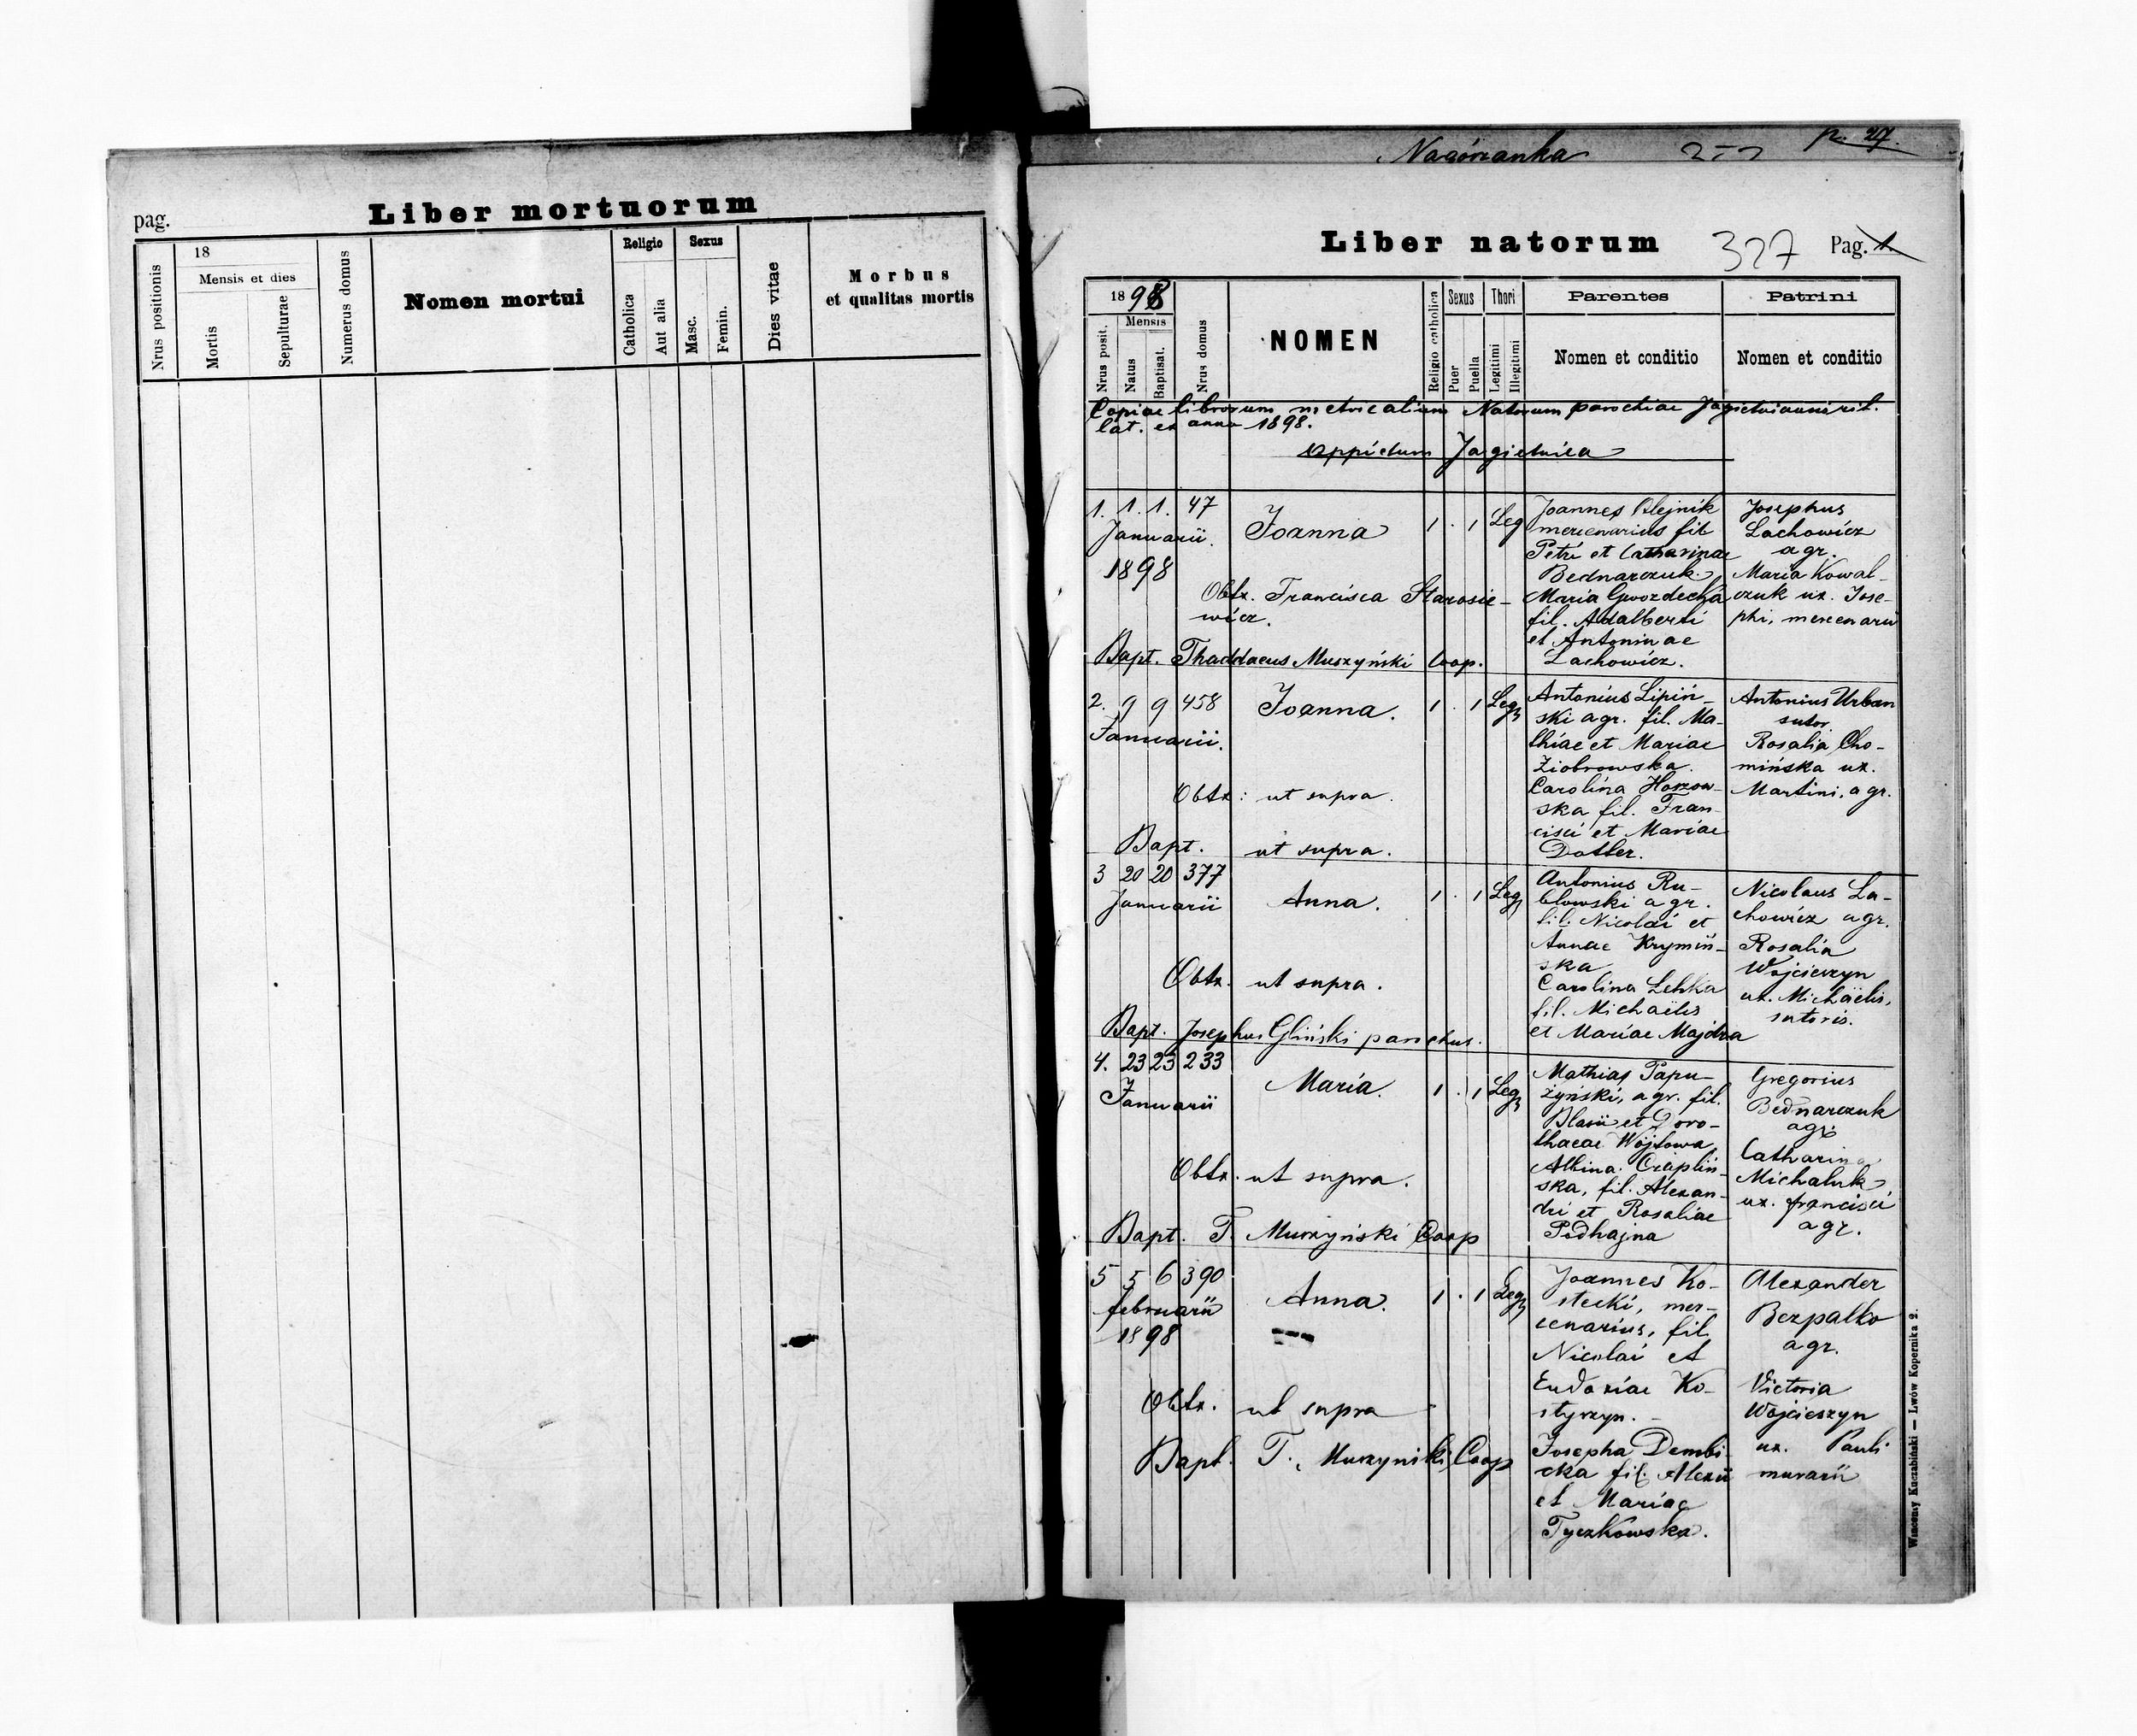 pag.
Liber mortuorum
Nrus positionis
18
Mensis et dies
Mortis
Sepulturae
Numerus domus
Nomen mortui
Religio
Catholica
Aut alia
Sexus
Masc.
Femin.
Dies vitae
Morbus
et qualitas mortis
Nagórzanka
p. 27.
Liber natorum 327 Pag. 1.
1898
Nrus posit.
Mensis
Natus
Baptisat.
Nrus domus
NOMEN
Religio catholica
Sexus
Puer
Puella
Thori
Legitimi
Illegitimi
Parentes
Nomen et conditio
Patrini
Nomen et conditio
Copiae librorum metricalium Natorum parochiae rit.
lat. ex anno 1898.
oppidum Jagielnica
1. 1. 1. 47
Januarii.
1898
Joanna
1 . 1 Leg
Obstx. Francisca Starosie-
wicz.
Bapt. Thaddaeus Muszyński Coop.
Joannes Olejnik
mercenarius fil
Petri et Catharinae
Bednarczuk
Maria Gwozdecka
fil. Adalberti
et Antoninae
Lachowicz.
Josephus
Lachowicz
agr.
Maria Kowal-
czuk ux. Jose-
phi, mercenarii
2. 9 9 458
Januarii.
Joanna.
1 . 1 Leg
Obstx: ut supra.
Bapt. ut supra.
Antonius Lipiń-
ski agr. fil. Ma-
thiae et Mariae
Ziobrowska.
Carolina
ska fil. Fran-
cisci et Mariae
Antonius Urban
sutor
Rosalia Cho-
mińska ux.
Martini, agr.
3 20 20 377
Januarii
Anna.
1 . 1 Leg
Obstx. ut supra.
Bapt. Josephus Gliński parochus.
Antonius Ru-
blowski agr.
fil. Nicolai et
Annae Krymiń-
ska
Carolina Lehka
fil. Michaëlis
et Mariae Majdra
Nicolaus La-
chowicz agr.
Rosalia
Wojcieszyn
ux. Michaëlis,
sutoris.
4. 23 23 233
Januarii
Maria.
1 . 1 Leg
Obstx. ut supra.
Bapt. T. Muszyński Coop
Mathias Papu-
żyński, agr. fil.
Blasii et Doro-
thaeae Wójtowa
Albina Czapliń-
ska, fil. Alexan-
dri et Rosaliae
Pidhajna
Gregorius
Bednarczuk
agr.
Catharina
Michaluk
ux. francisci
agr.
5 5 6 390
februarii
1898
Anna.
1 . 1 Leg
Obstx. ut supra
Bapt. T. Muszyński Coop
Joannes Ko-
stecki, mer-
cenarius, fil
Nicolai et
Eudoxiae Ko-
styrzyn.
Josepha Dembi-
cka fil. Alexii
et Mariae
Tyczkowska.
Alexander
Bezpalko
agr.
Victoria
Wojcieszyn
ux. Pauli
murarii
Wincenty Kuczabiński — Lwów Kopernika 2.